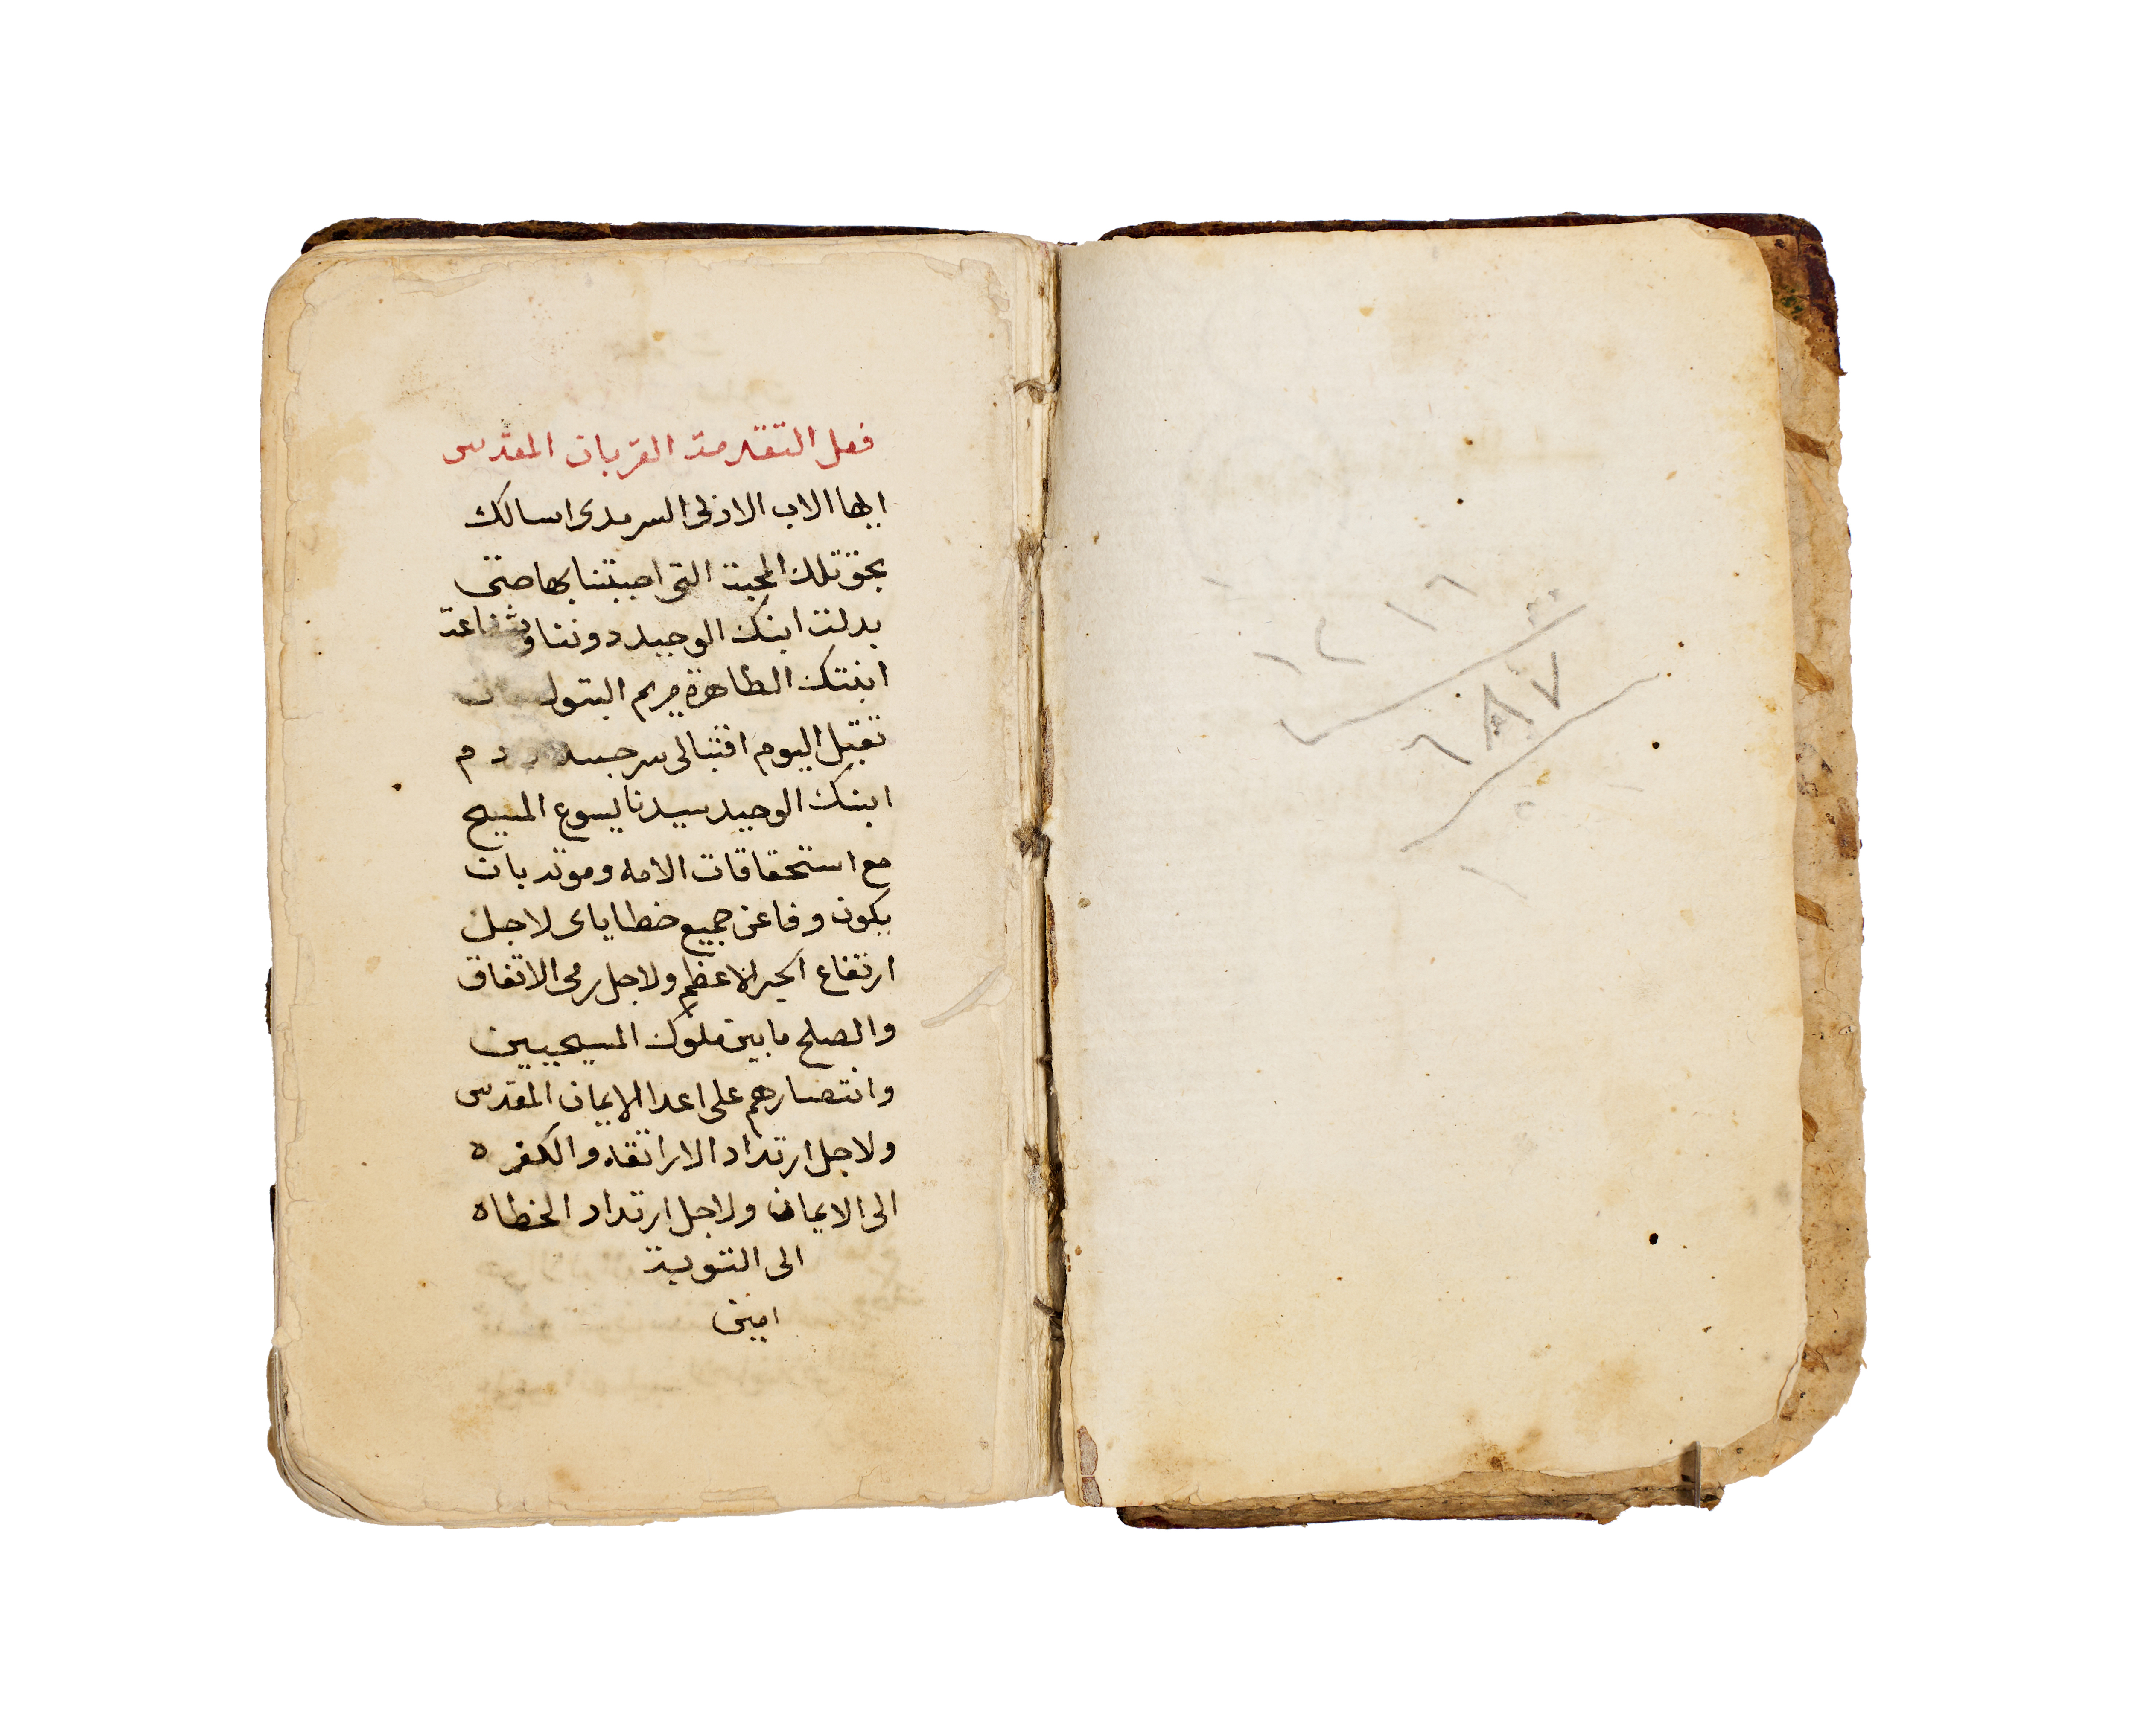 ١٢١٦
٦٨٧
فعل التقدمة القربان المقدس
ايها الاب الازلى السرمدى اسالك
بحق تلك المحبة التى احبتنا بها حتى
بدلت ابنك الوحيد دوننا وبشفاعة
ابنتك الطاهرة مريم البتول ان
تقبل اليوم اقتبالى سر جسد ودم
ابنك الوحيد سيدنا يسوع المسيح
مع استحقاقات الامه وموته بان
يكون وفا عن جميع خطاياى لاجل
ارتفاع الحبر الاعظم ولاجل رمى الاتفاق
والصلح ما بين ملوك المسيحيين
وانتصارهم على اعدا الايمان المقدس
ولاجل ارتداد الاراتقه والكفره
الى الايمان ولاجل ارتداد الخطاه
الى التوبة
امين